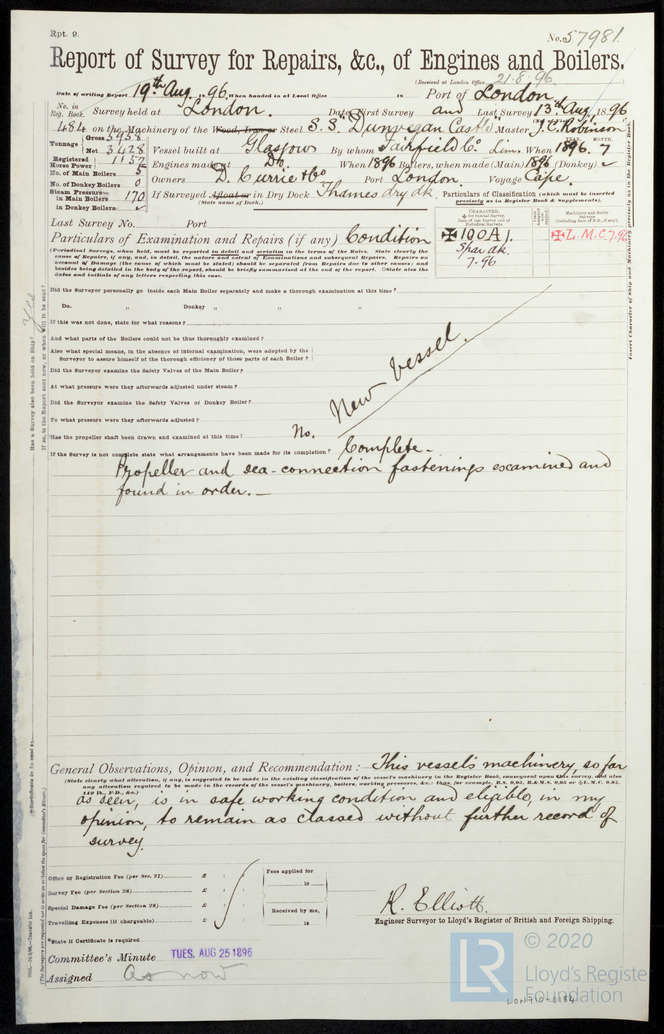 Rpt. 9.
No. 57981.
Report of Survey for Repairs, &c., of Engines and Boilers.
(Received at London Office 21-8-96
Date of writing Report 19th Aug 1896. When handed in at Local Office 18 Port of London
No. in Reg. Book. Survey held at London. Date, First Survey and Last Survey 13th Aug. 1896
484 on the Machinery of the Wood, Iron or Steel S.S. "Dunvegan Castle" Master J.C. Robinson
Tonnage Gross 5958
Net 3428 Vessel built at Glasgow By whom Fairfield Co. Lim. When 1896. 7
Registered Horse Power 1157 Engines made at Do. When 1896 Boilers, when made (Main) 1896 (Donkey)
No. of Main Boilers 5
No. of Donkey Boilers 0 Owners D. Currie & Co Port London Voyage Cape.
Steam Pressure in Main Boilers 170 If Surveyed Afloat or in Dry Dock Thames dry dk
in Donkey Boilers (State name of Dock.)
Particulars of Classification (which must be inserted precisely as in Register Book & Supplements).
CHARACTER.
✠100A1.
Spar dk
7-96
Machinery and Boiler Surveys
✠L.M.C 7.96
Last Survey No. Port
Particulars of Examination and Repairs (if any) Condition
(Periodical Surveys, when held, must be reported in detail and seriatim in the terms of the Rules. State clearly the
cause of Repairs, if any, and, in detail, the nature and extent of Examinations and subsequent Repairs. Repairs on
account of Damage (the cause of which must be stated) should be separated from Repairs due to other causes; and
besides being detailed in the body of the report, should be briefly summarised at the end of the report. State also the
dates and initials of any letters respecting this case.
Did the Surveyor personally go inside each Main Boiler separately and make a thorough examination at this time?
Do. " Donkey " " "
If this was not done, state for what reasons?
And what parts of the Boilers could not be thus thoroughly examined?
Also what special means, in the absence of internal examination, were adopted by the
Surveyor to assure himself of the thorough efficiency of those parts of each Boiler?
Did the Surveyor examine the Safety Valves of the Main Boiler?
At what pressure were they afterwards adjusted under steam?
Did the Surveyor examine the Safety Valves of Donkey Boiler?
To what pressure were they afterwards adjusted?
New Vessel.
Has the propeller shaft been drawn and examined at this time? No.
If the Survey is not complete state what arrangements have been made for its completion? Complete.
Propeller and sea-connection fastenings examined and
found in order.
General Observations, Opinion, and Recommendation: This vessel's machinery, so far
(State clearly what alteration, if any, is suggested to be made in the existing classification of the vessel's machinery in the Register Book, consequent upon this survey, and also
any alteration required to be made in the records of the vessel's machinery, boilers, working pressures, &c.
as seen, is in safe working condition and eligible, in my
opinion, to remain as classed without further record of
survey.
Office or Registration Fee (per Sec. 27) £
Survey Fee (per Section 28) £
Special Damage Fee (per Section 28) £
Travelling Expenses (if chargeable) £
Fees applied for
18
Received by me,
18
R. Elliott.
Engineer Surveyor to Lloyd's Register of British and Foreign Shipping.
State if Certificate is required
Committee's Minute TUES. AUG 25 1896
Assigned As now
© 2020
Lloyd's Registe
Foundation
LR
LON710-0184